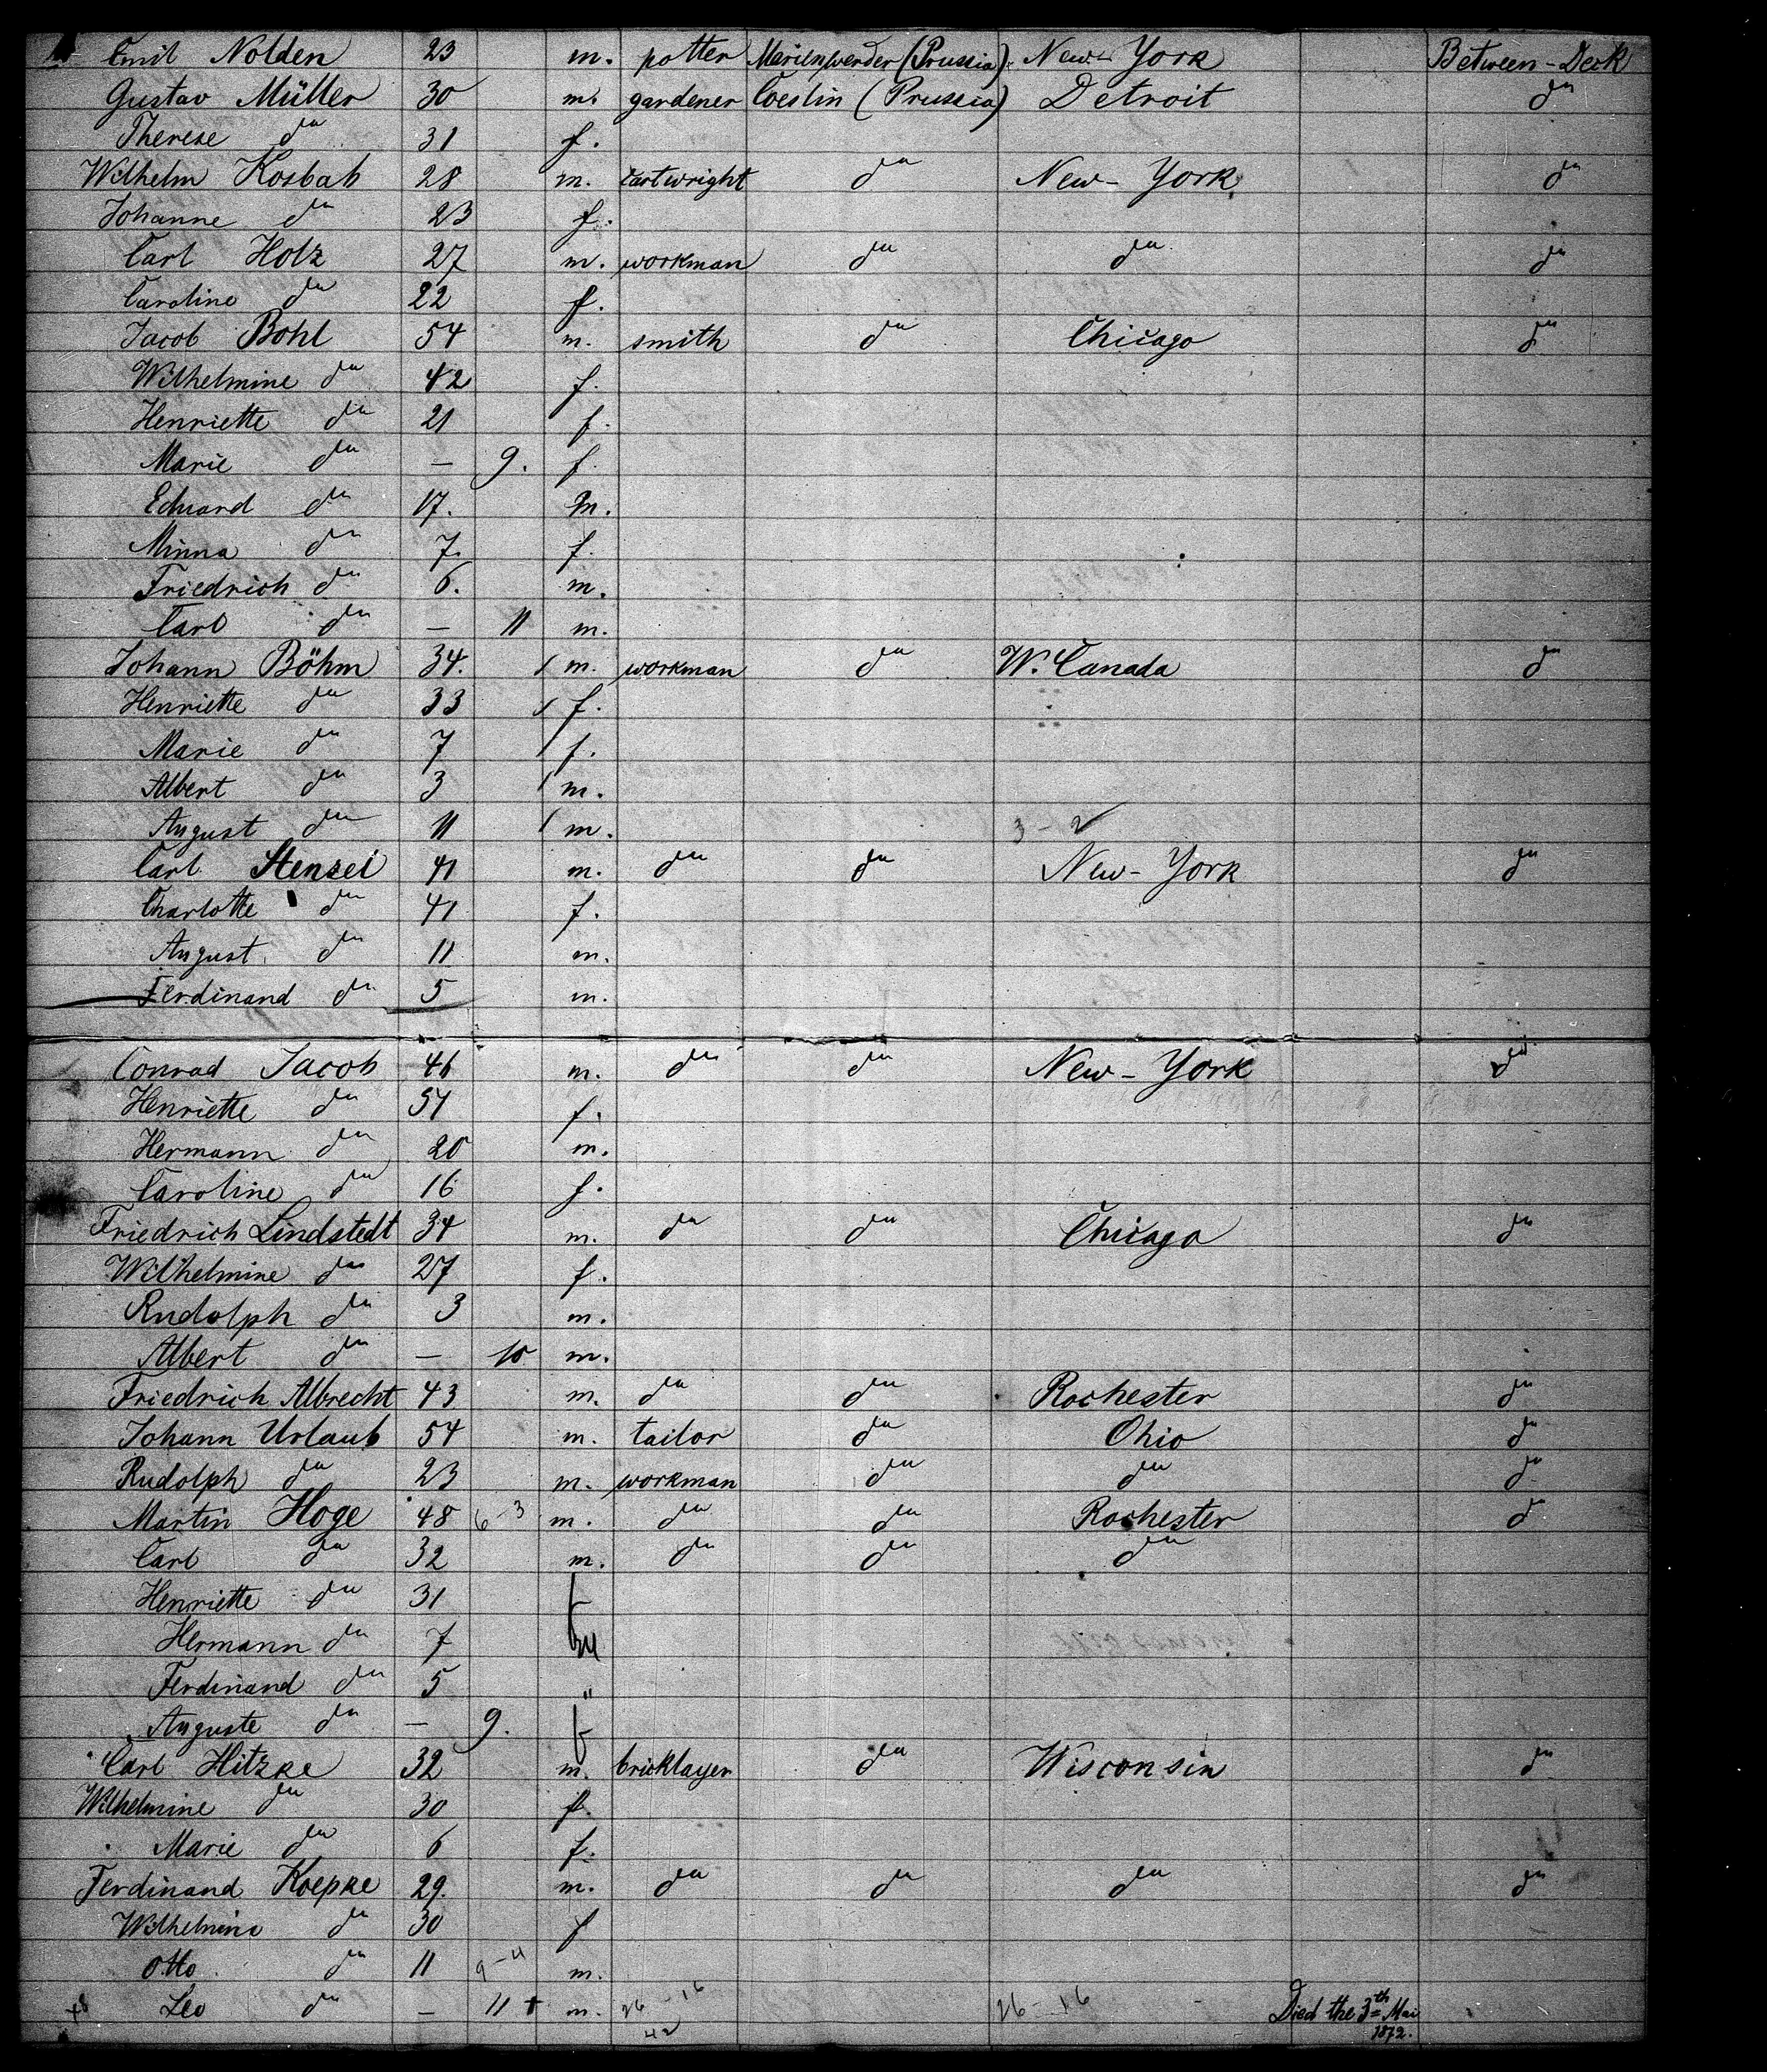 Emil Nolden 23 m. potter Marienwerder (Prussia). New-York Between-Deck
Gustav Müller 30 m. gardener Coeslin (Prussia) Detroit do
Therese do 31 f.
Wilhelm Kosbab 28 m. cartwright do New-York do
Johanne do 23 f.
Carl Holz 27 m. workman do do do
Caroline do 22 f.
Jacob Bohl 54 m. smith do Chicago do
Wilhelmine do 42 f.
Henriette do 21 f.
Marie do — 9. f.
Eduard do 17. m.
Minna do 7. f.
Friedrich do 6. m.
Carl do — 11 m.
Johann Böhm 34. / m. workman do W. Canada do
Henriette do 33 / f.
Marie do 7 / f.
Albert do 3 / m.
August do 11 / m. 3-2
Carl Stenzel 41 m. do do New-York do
Charlotte do 41 f.
August do 11 m.
Ferdinand do 5 m.
Conrad Jacob 46 m. do do New-York do
Henriette do 51 f.
Hermann do 20 m.
Caroline do 16 f.
Friedrich Lindstedt 34 m. do do Chicago do
Wilhelmine do 27 f.
Rudolph do 3 m.
Albert do — 10 m.
Friedrich Albrecht 43 m. do do Rochester do
Johann Urlaub 54 m. tailor do Ohio do
Rudolph do 23 m. workman do do do
Martin Hoge 48 6-3 m. do do Rochester do
Carl do 32 m. do do do
Henriette do 31 f
Hermann do 7 m
Ferdinand do 5 "
Auguste do — 9. f
Carl Hitzke 32 m. bricklayer do Wisconsin do
Wilhelmine do 30 f.
Marie do 6 f.
Ferdinand Koepke 29. m. do do do do
Wilhelmine do 30 f
Otto do 11 9-4 m.
48 Leo do — 11 + m. 26-16 26-16 Died the 3th Mai
42 1872.